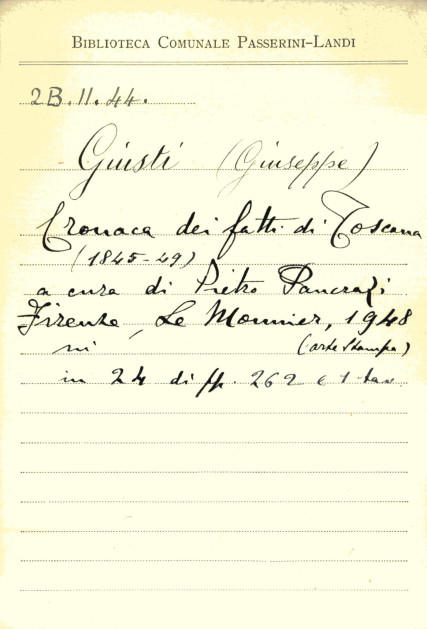 BIBLIOTECA COMUNALE PASSERINI-LANDI
2B.II.44.
Giusti (Giuseppe)
Cronaca dei fatti di Toscana
(1845-49)
a cura di Pietro Pancrazi
Firenze, Le Monnier, 1948
(arte Stampa)
in 24 di pp. 262 e 1 tav